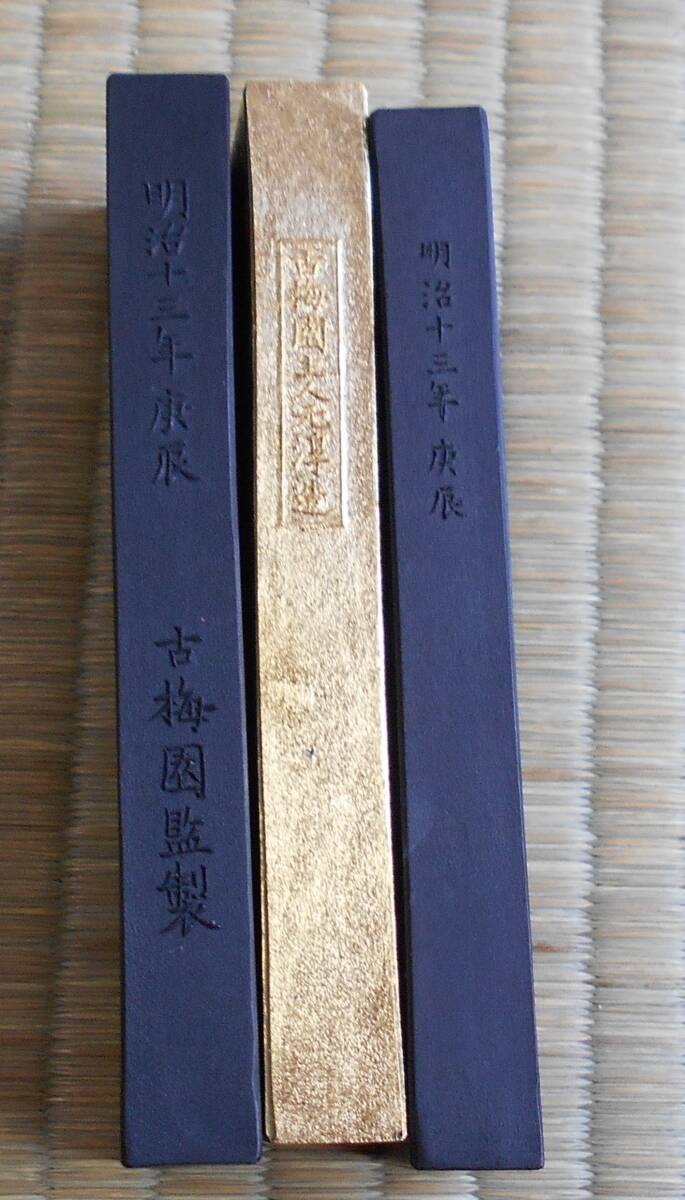 明治十三年 庚辰 古梅園監製
古梅園大元淳造
明治十三年 庚辰